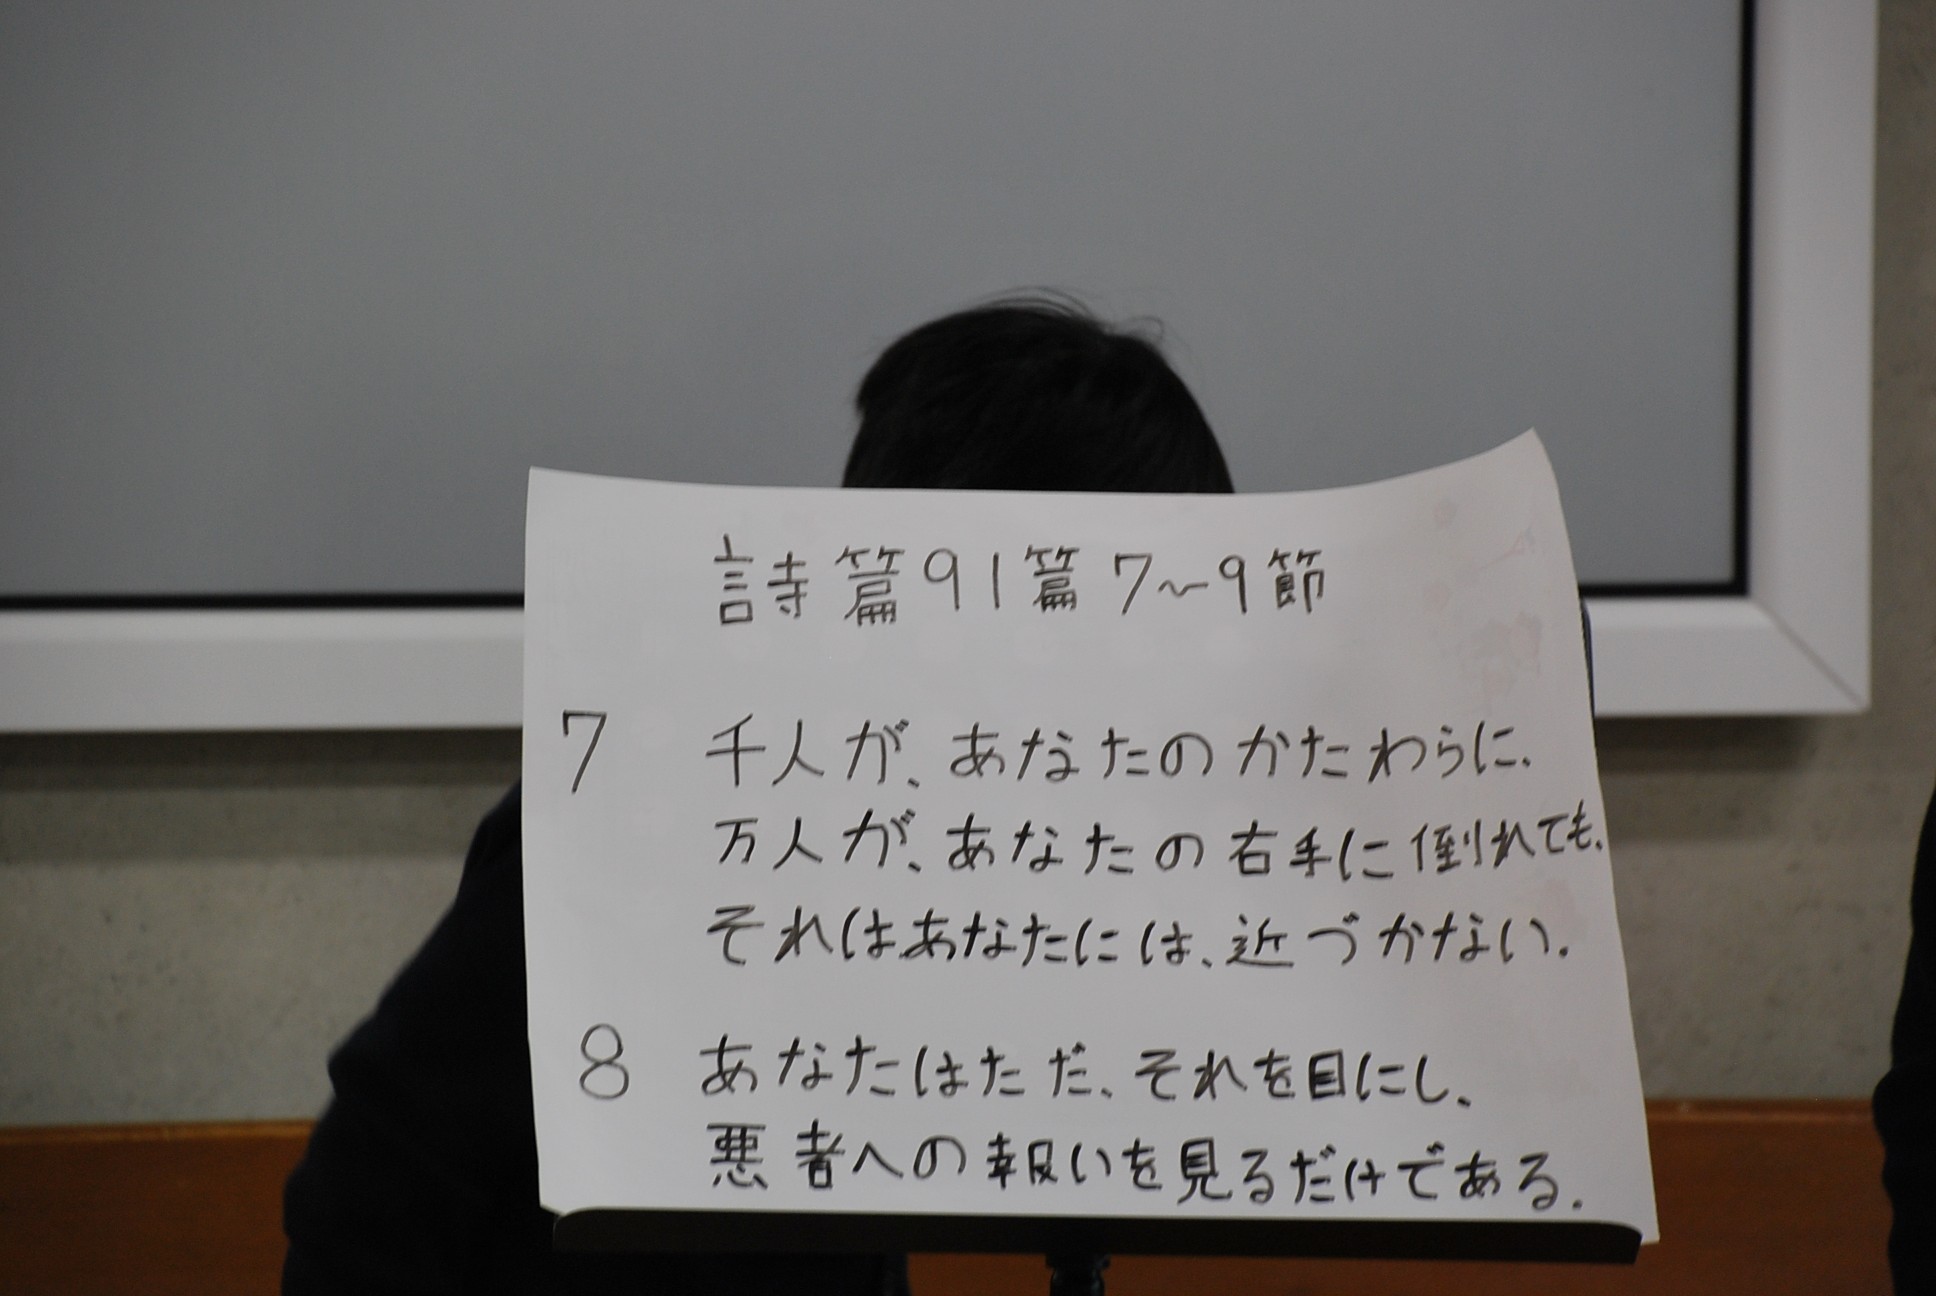 詩篇91篇7〜9節
7 千人が、あなたのかたわらに、
万人が、あなたの右手に倒れても、
それはあなたには、近づかない。
8 あなたはただ、それを目にし、
悪者への報いを見るだけである。